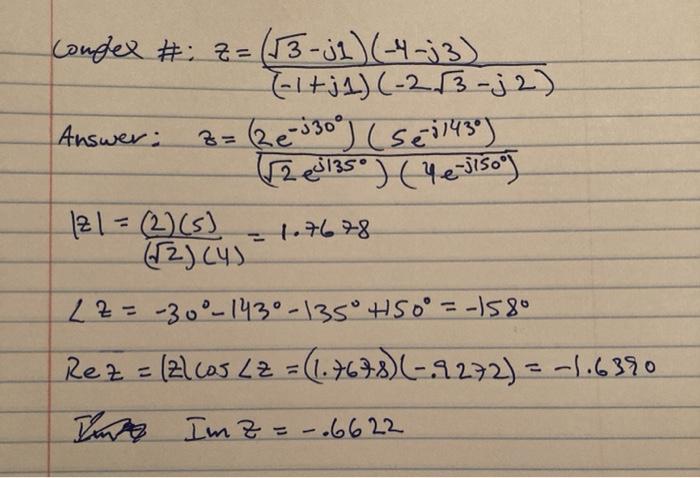 Complex #: z = (√3 - j1)(-4 - j3) / (-1 + j1)(-2√3 - j2)
Answer: z = (2e^-j30°)(5e^-j143°) / (√2 e^j135°)(4e^-j150°)
|z| = (2)(5) / (√2)(4) = 1.7678
∠z = -30° - 143° - 135° + 150° = -158°
Re z = |z| cos ∠z = (1.7678)(-.9272) = -1.6390
Im z = -.6622